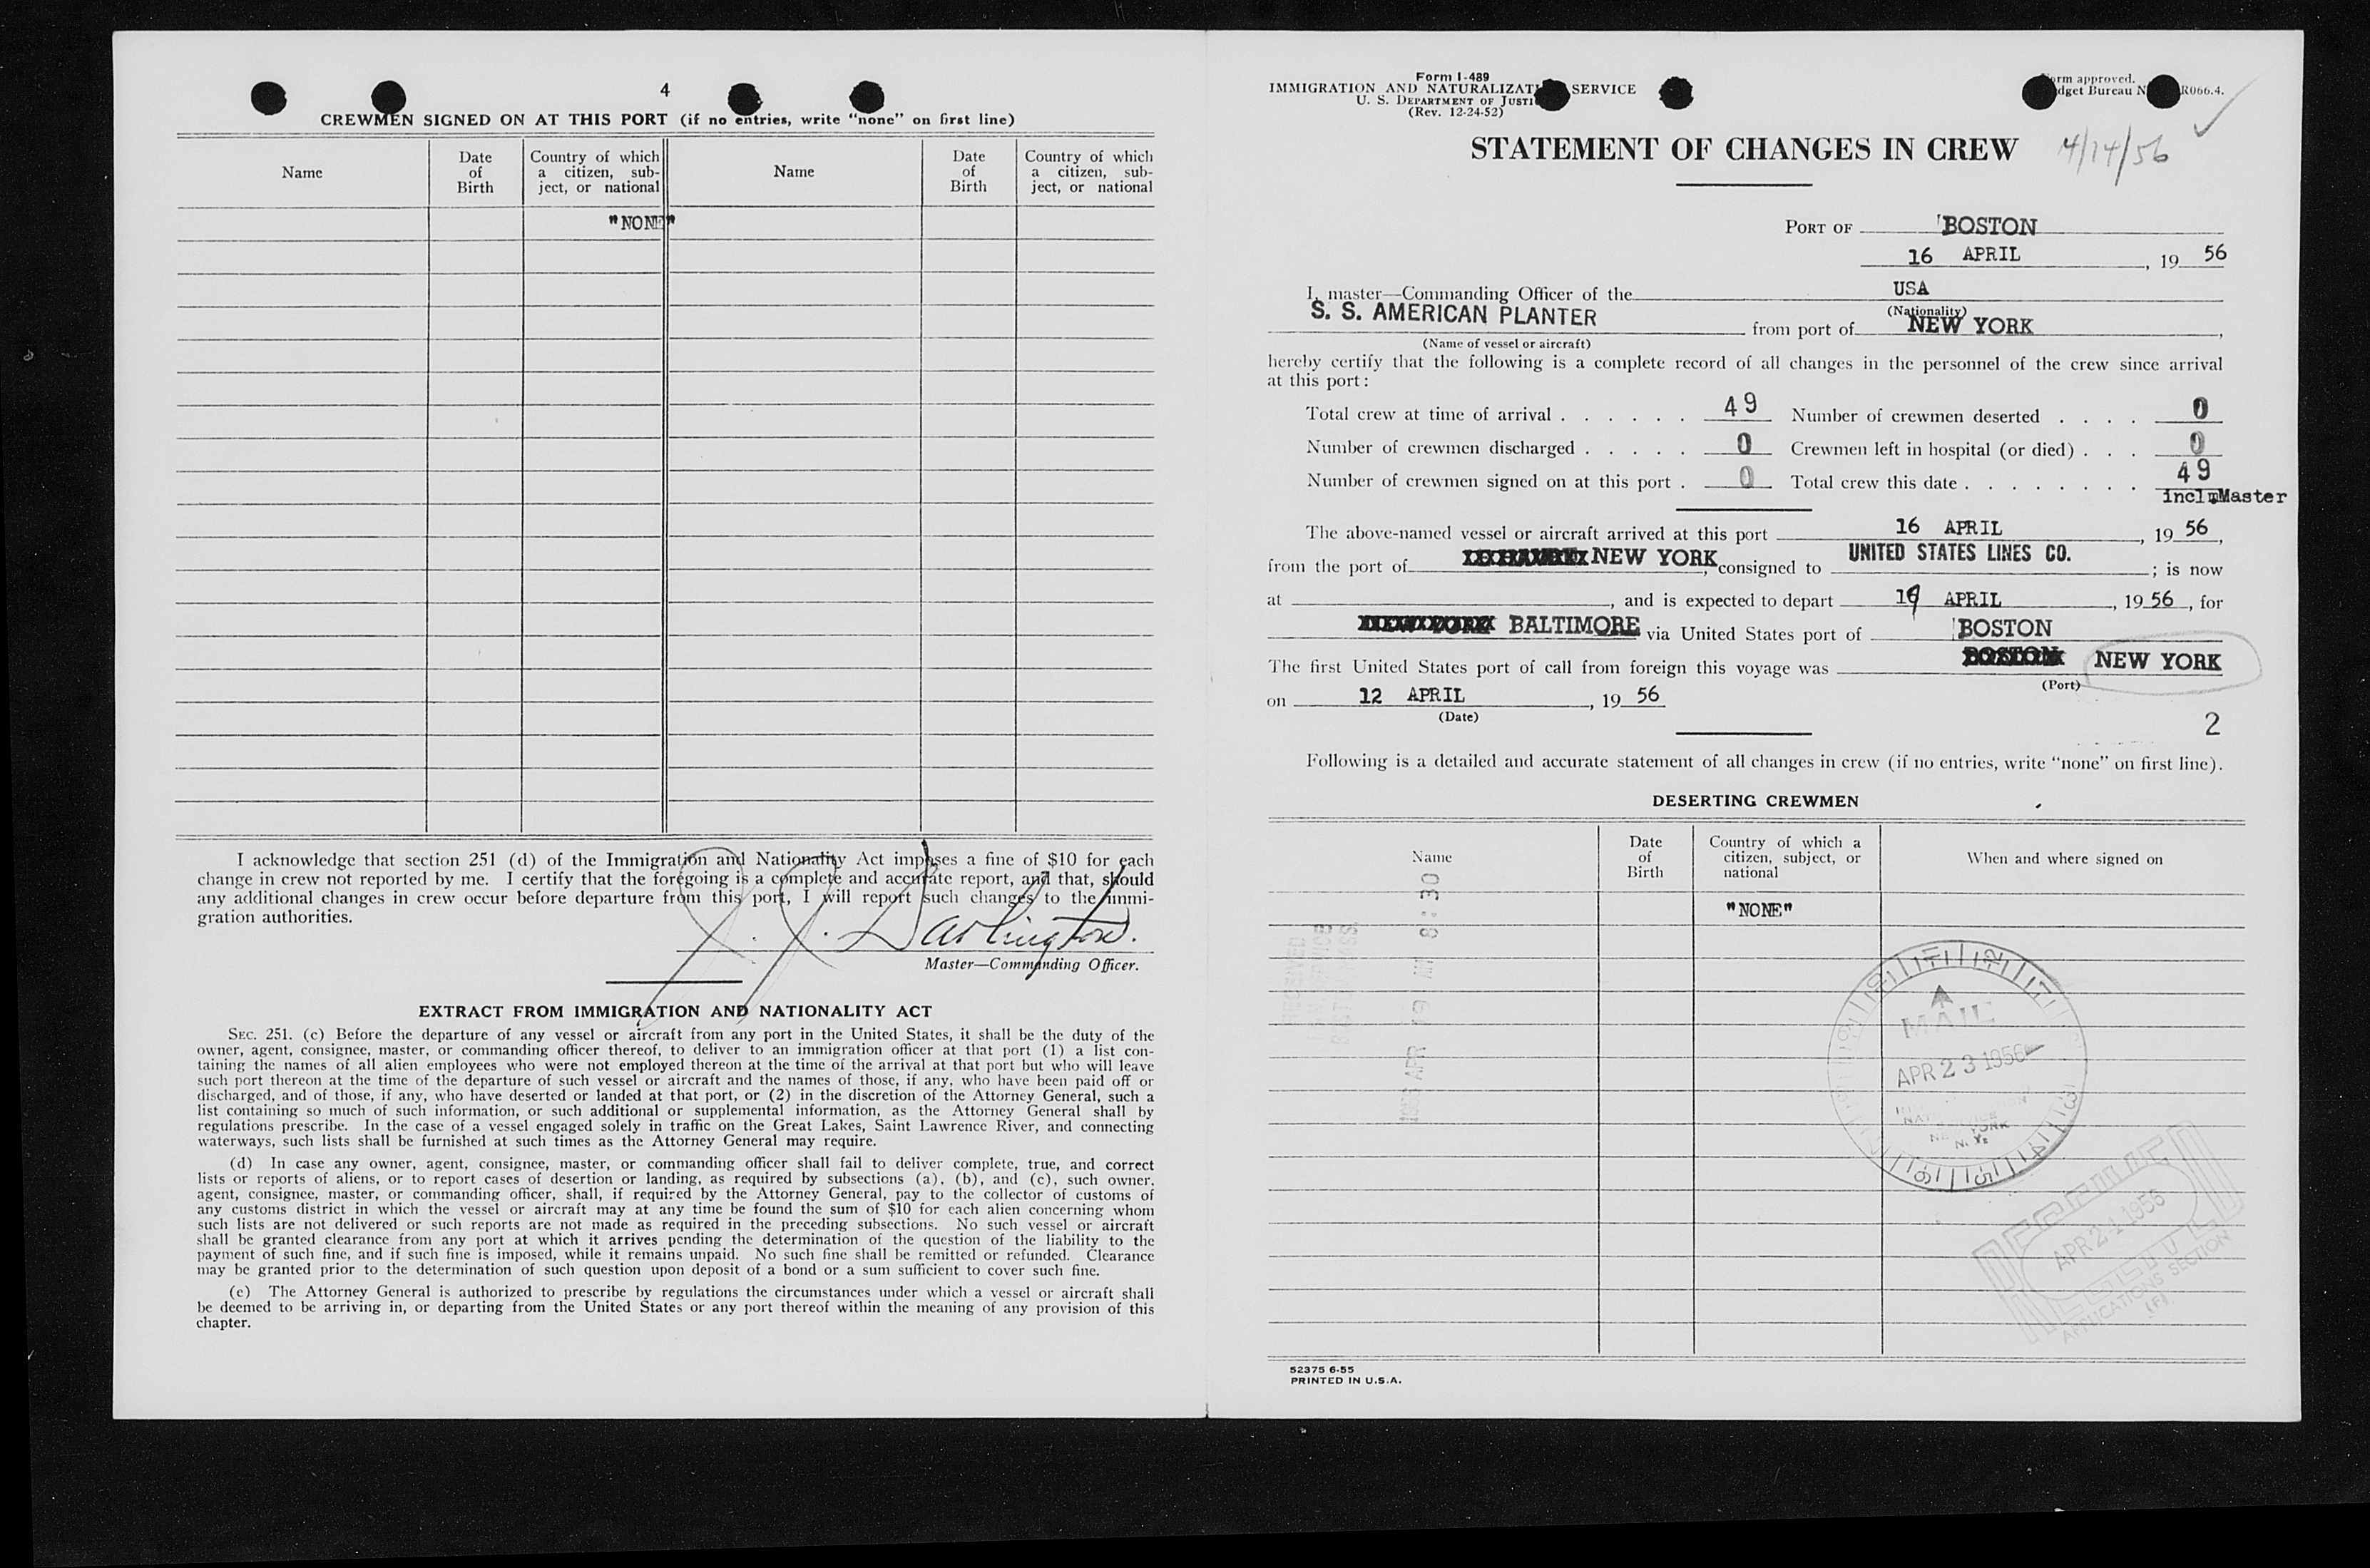 4
CREWMEN SIGNED ON AT THIS PORT (if no entries, write "none" on first line)
Name
Date of Birth
Country of which a citizen, sub-ject, or national
Name
Date of Birth
Country of which a citizen, sub-ject, or national
"NONE"
I acknowledge that section 251 (d) of the Immigration and Nationality Act imposes a fine of $10 for each
change in crew not reported by me. I certify that the foregoing is a complete and accurate report, and that, should
any additional changes in crew occur before departure from this port, I will report such changes to the immi-
gration authorities.
J. J. Darlington.
Master—Commanding Officer.
EXTRACT FROM IMMIGRATION AND NATIONALITY ACT
SEC. 251. (c) Before the departure of any vessel or aircraft from any port in the United States, it shall be the duty of the
owner, agent, consignee, master, or commanding officer thereof, to deliver to an immigration officer at that port (1) a list con-
taining the names of all alien employees who were not employed thereon at the time of the arrival at that port but who will leave
such port thereon at the time of the departure of such vessel or aircraft and the names of those, if any, who have been paid off or
discharged, and of those, if any, who have deserted or landed at that port, or (2) in the discretion of the Attorney General, such a
list containing so much of such information, or such additional or supplemental information, as the Attorney General shall by
regulations prescribe. In the case of a vessel engaged solely in traffic on the Great Lakes, Saint Lawrence River, and connecting
waterways, such lists shall be furnished at such times as the Attorney General may require.
(d) In case any owner, agent, consignee, master, or commanding officer shall fail to deliver complete, true, and correct
lists or reports of aliens, or to report cases of desertion or landing, as required by subsections (a), (b), and (c), such owner,
agent, consignee, master, or commanding officer, shall, if required by the Attorney General, pay to the collector of customs of
any customs district in which the vessel or aircraft may at any time be found the sum of $10 for each alien concerning whom
such lists are not delivered or such reports are not made as required in the preceding subsections. No such vessel or aircraft
shall be granted clearance from any port at which it arrives pending the determination of the question of the liability to the
payment of such fine, and if such fine is imposed, while it remains unpaid. No such fine shall be remitted or refunded. Clearance
may be granted prior to the determination of such question upon deposit of a bond or a sum sufficient to cover such fine.
(e) The Attorney General is authorized to prescribe by regulations the circumstances under which a vessel or aircraft shall
be deemed to be arriving in, or departing from the United States or any port thereof within the meaning of any provision of this
chapter.
Form I-489
IMMIGRATION AND NATURALIZATI SERVICE
U. S. DEPARTMENT OF JUSTI
(Rev. 12-24-52)
orm approved.
dget Bureau N R066.4.
STATEMENT OF CHANGES IN CREW
4/14/56
PORT OF BOSTON
16 APRIL, 19 56
I, master—Commanding Officer of the USA
(Nationality)
S. S. AMERICAN PLANTER from port of NEW YORK,
(Name of vessel or aircraft)
hereby certify that the following is a complete record of all changes in the personnel of the crew since arrival
at this port:
Total crew at time of arrival . . . . . . 49 Number of crewmen deserted . . . . 0
Number of crewmen discharged . . . . . 0 Crewmen left in hospital (or died) . . . 0
Number of crewmen signed on at this port . 0 Total crew this date . . . . . . . . 49
incl. Master
The above-named vessel or aircraft arrived at this port 16 APRIL, 19 56,
from the port of NEW YORK, consigned to UNITED STATES LINES CO. ; is now
at , and is expected to depart 19 APRIL, 19 56, for
BALTIMORE via United States port of BOSTON
The first United States port of call from foreign this voyage was BOSTON NEW YORK
(Port)
on 12 APRIL, 19 56
(Date)
2
Following is a detailed and accurate statement of all changes in crew (if no entries, write "none" on first line).
DESERTING CREWMEN
Name
Date of Birth
Country of which a citizen, subject, or national
When and where signed on
"NONE"
RECEIVED
1956 APR 19 AM 8:30
MAIL
APR 23 1956
N. Y.
RECEIVED
APR 24 1956
APPLICATIONS SECTION
(F)
52375 6-55
PRINTED IN U.S.A.